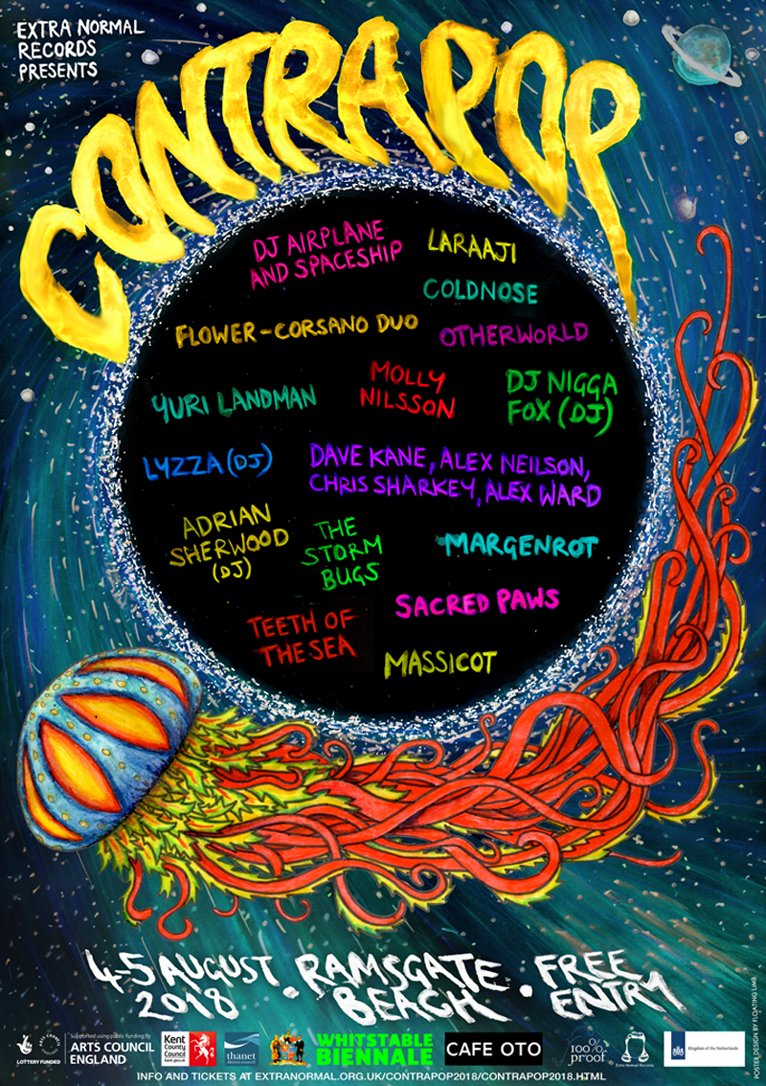 EXTRA NORMAL
RECORDS
PRESENTS
CONTRAPOP
DJ AIRPLANE
AND SPACESHIP
LARAAJI
COLDNOSE
FLOWER-CORSANO DUO
OTHERWORLD
YURI LANDMAN
MOLLY
NILSSON
DJ NIGGA
FOX (DJ)
LYZZA (DJ)
DAVE KANE, ALEX NEILSON,
CHRIS SHARKEY, ALEX WARD
ADRIAN
SHERWOOD
(DJ)
THE
STORM
BUGS
MARGENROT
SACRED PAWS
TEETH OF
THE SEA
MASSICOT
4-5 AUGUST
2018
· RAMSGATE
BEACH
· FREE
ENTRY
LOTTERY FUNDED
Supported using public funding by
ARTS COUNCIL
ENGLAND
Kent
County
Council
thanet
WHITSTABLE
BIENNALE
CAFE OTO
100%
proof
Extra Normal Records
Kingdom of the Netherlands
INFO AND TICKETS AT EXTRANORMAL.ORG.UK/CONTRAPOP2018/CONTRAPOP2018.HTML
POSTER DESIGN BY FLOATING LIMB